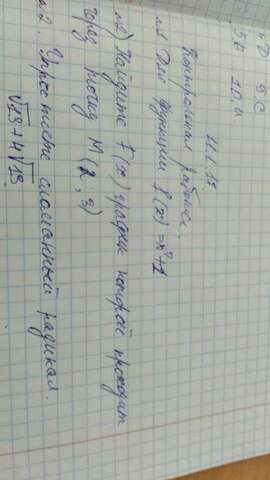 4D 9.C
5A 10.A
11.1.17.
Контрольная работа.
№1 Для функции f(x)=x²+1
Найдите F(x) график которой проходит
через точку M(2; 3)
№2. Упростите сложный радикал.